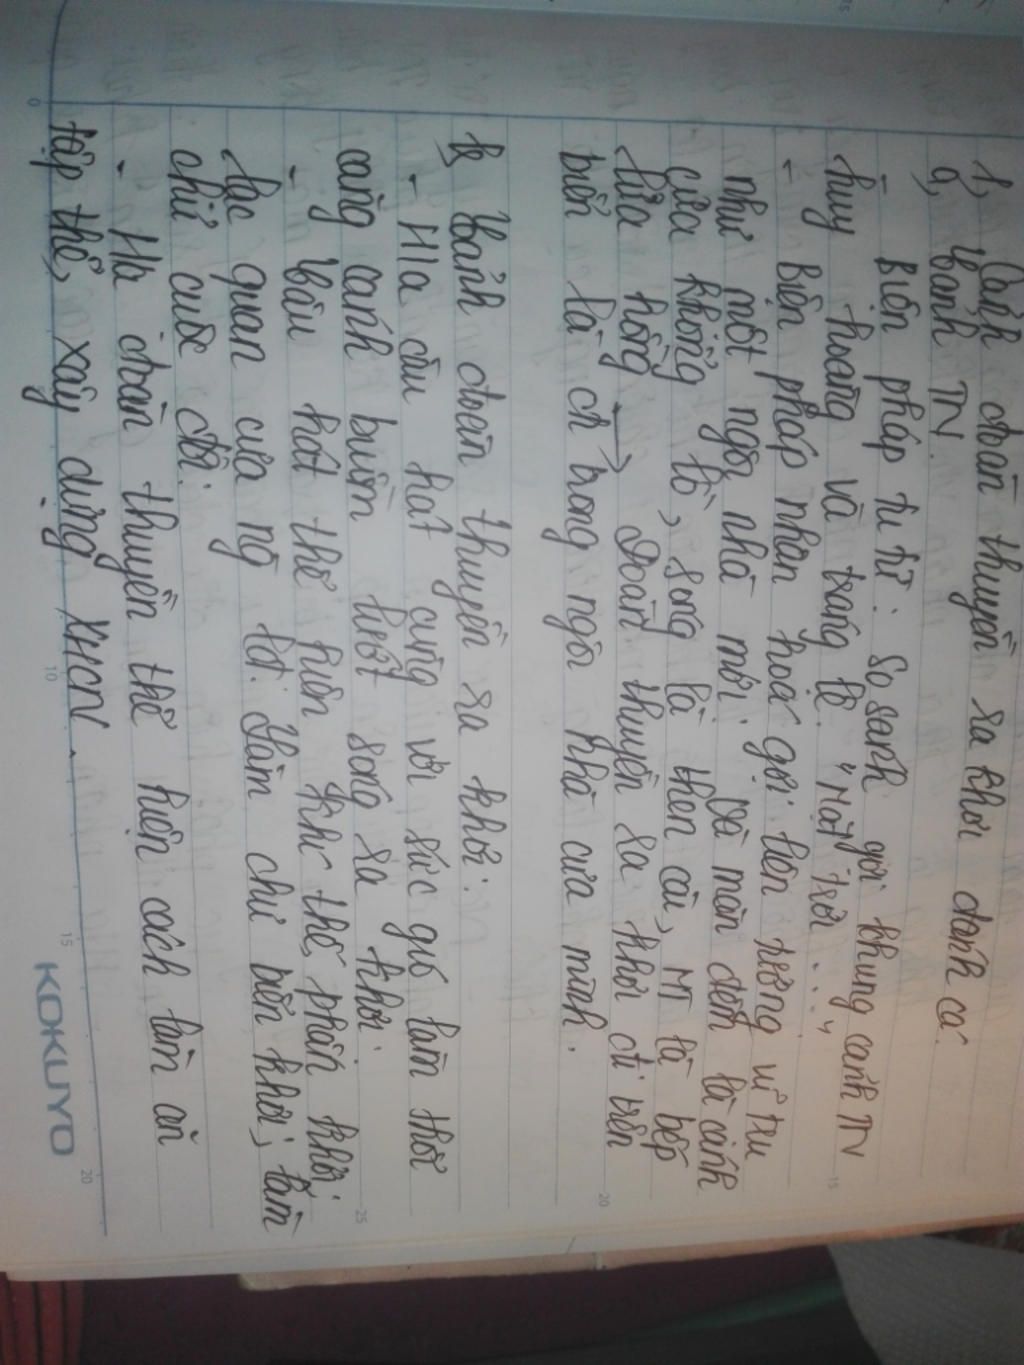 1, Cảnh đoàn thuyền ra khơi đánh cá.
a, Cảnh TN.
- Biện pháp tu từ: So sánh gợi khung cảnh TN
huy hoàng và tráng lệ. "Mặt trời ...."
- Biện pháp nhân hoá gợi liên tưởng vũ trụ
như một ngôi nhà mới. Và màn đêm là cánh
cửa khổng lồ, sóng là then cài, MT là bếp
lửa hồng → Đoàn thuyền ra khơi đi trên
biển là đi trong ngôi nhà của mình.
b, Cảnh đoàn thuyền ra khơi:
- H/a câu hát cùng với sức gió làm thổi
căng cánh buồm lướt sóng ra khơi.
- Câu hát thể hiện khí thế, phấn khởi,
lạc quan của ng lđ. Làm chủ biển khơi, làm
chủ cuộc đời.
- Ha đoàn thuyền thể hiện cách làm ăn
tập thể, xây dựng XHCN.
KOKUYO